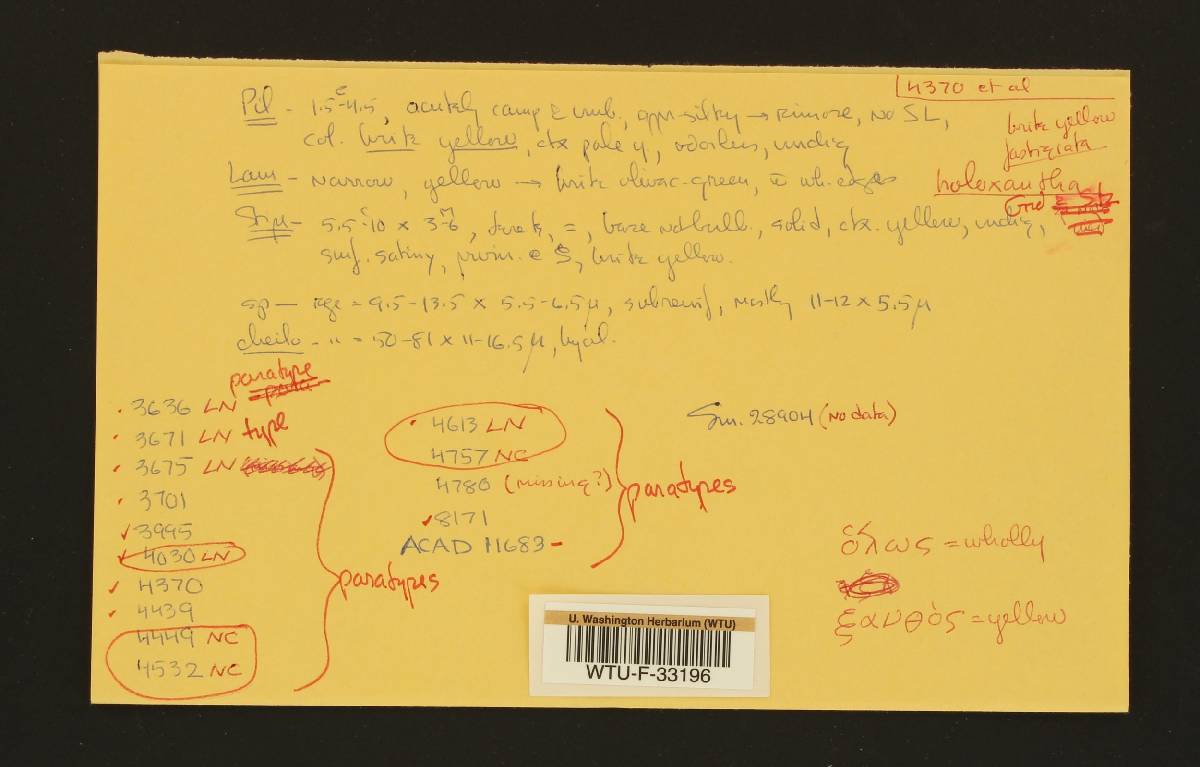 4370 et al
Pil - 1.5-4.5, acutely camp & umb., appr-silky → rimose, no SL,
col. brite yellow, ctx pale y, odorless, undiq
brite yellow
fastigiata
Lam - narrow, yellow → brite olivac-green, wh. edges
holoxantha
Stip - 5.5-10 x 3-6, =, base not bulb., solid, ctx. yellow, undiq,
surf. satiny, pruin. brite yellow.
sp - rge = 9.5-13.5 x 5.5-6.5µ, subrenif, mostly 11-12 x 5.5µ
cheilo - " = 50-81 x 11-16.5µ, hyal.
paratype
3636 LN
3671 LN type
3675 LN
3701
3995
4030 LN
4370
4439
4449 NC
4532 NC
paratypes
4613 LN
4757 NC
4780 (missing?)
8171
ACAD 11683
paratypes
Sm. 28904 (no data)
ὅλως = wholly
ξανθὸς = yellow
U. Washington Herbarium (WTU)
WTU-F-33196